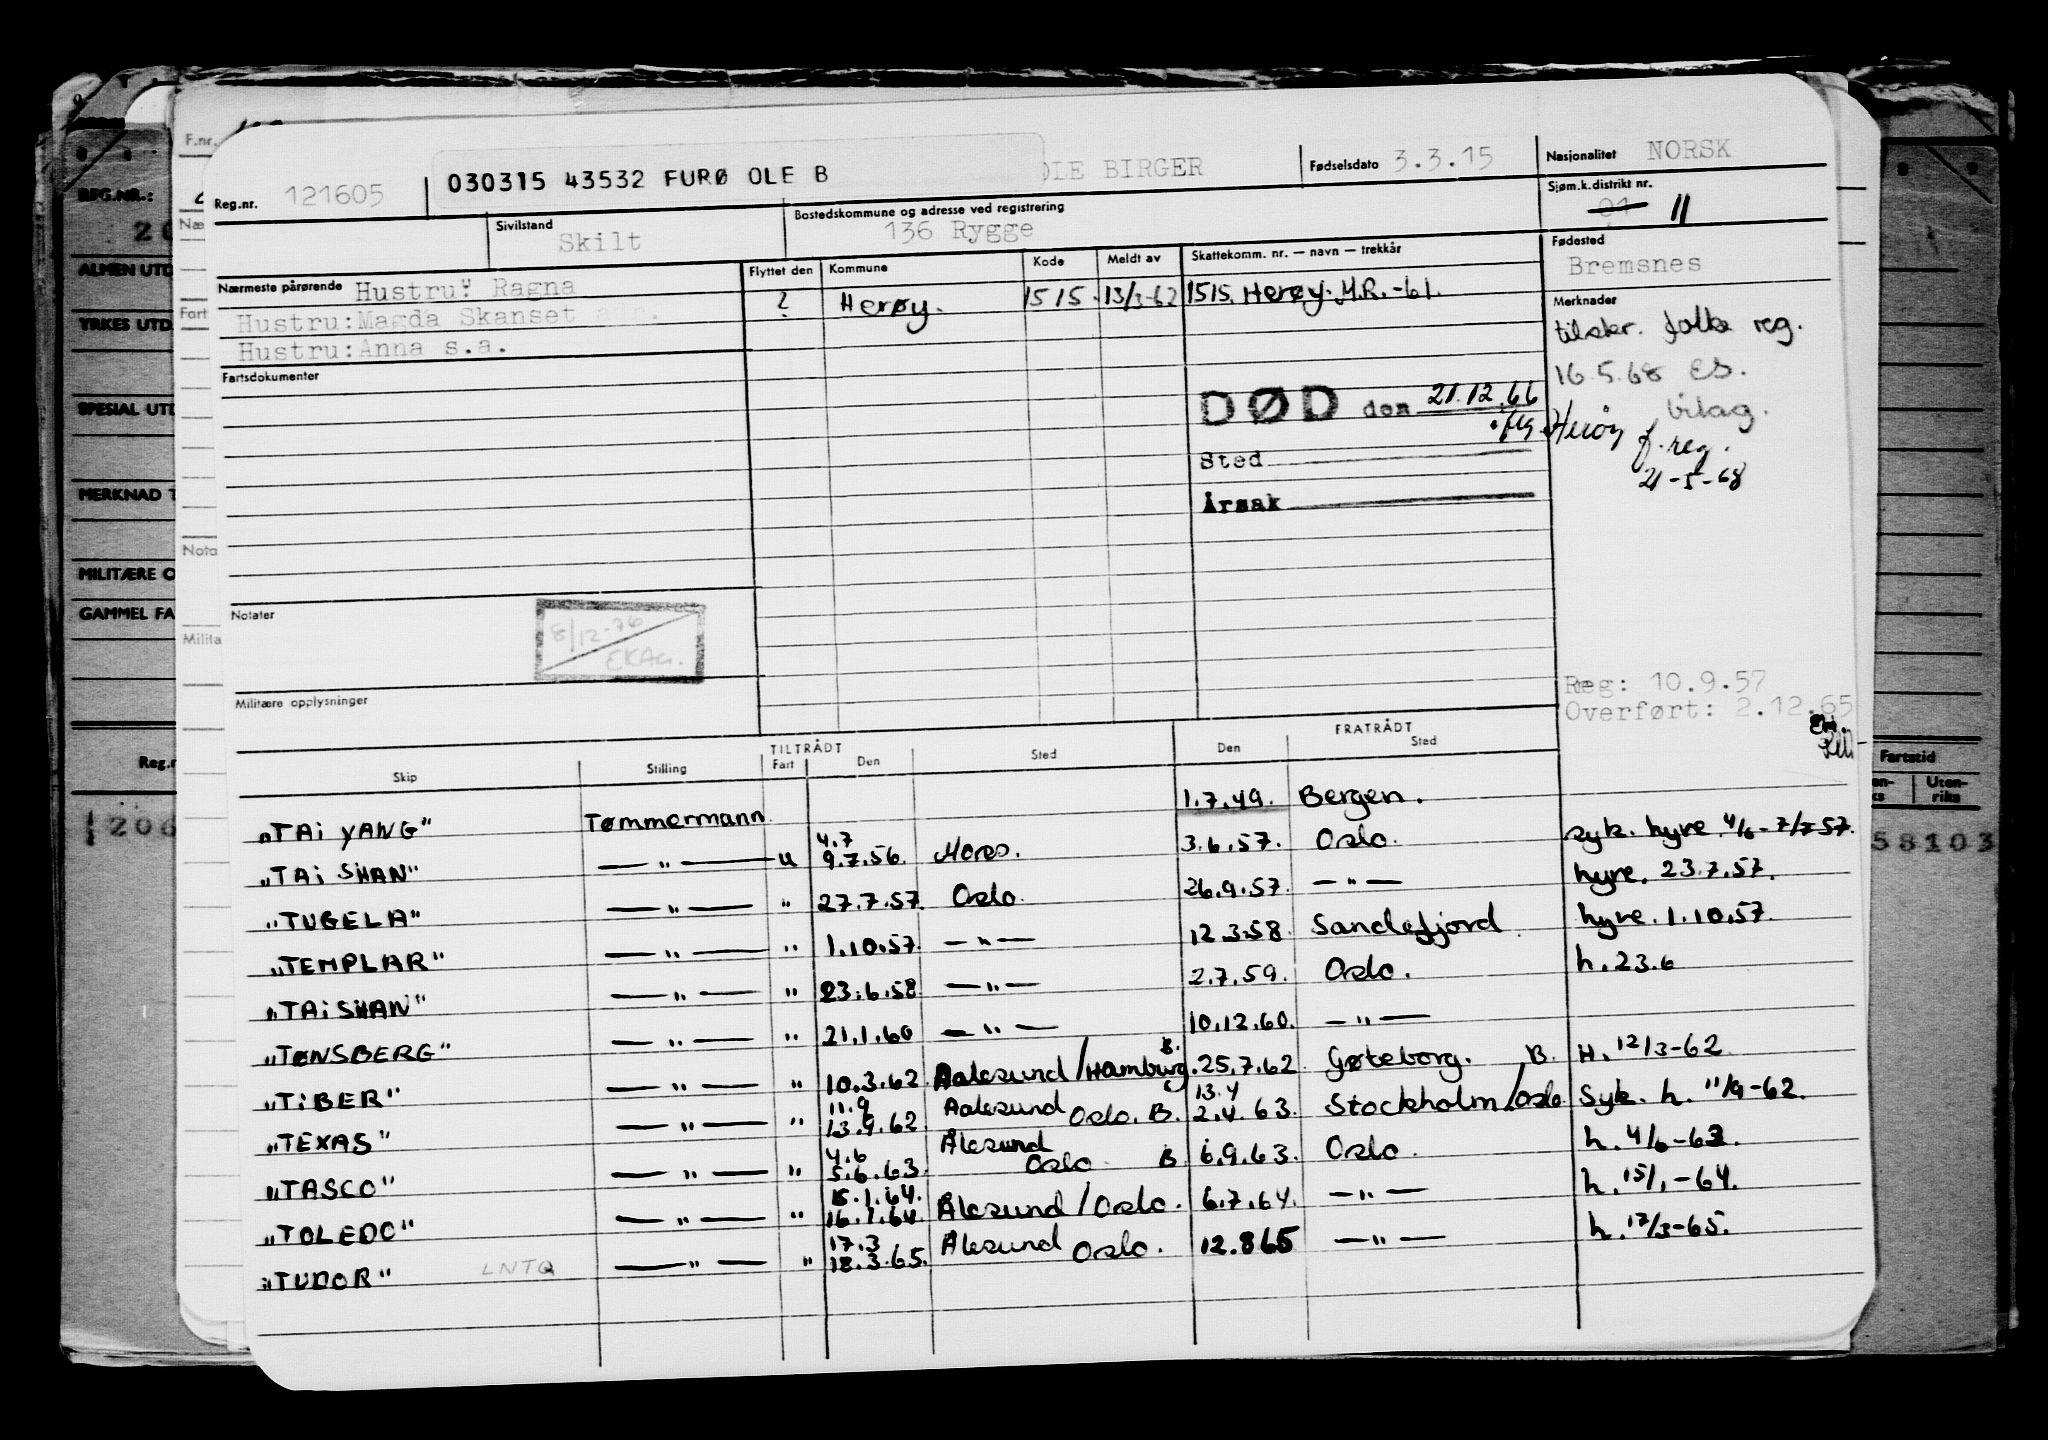 F.nr.
REG.NR.:
ALMEN UTD
YRKES UTD
SPESIAL UTD
MERKNAD T
MILITÆRE O
GAMMEL FA
Reg.nr. 121605
030315 43532 FURØ OLE B
OLE BIRGER
Fødselsdato 3.3.15
Nasjonalitet NORSK
Sjøm.k.distrikt nr. 01 11
Sivilstand
Skilt
Bostedskommune og adresse ved registrering
136 Rygge
Fødested
Bremsnes
Nærmeste pårørende Hustru: Ragna
Hustru:Magda Skanset
Hustru:Anna s.a.
Flyttet den Kommune Kode Meldt av Skattekomm. nr. — navn — trekkår
? Herøy. 1515. 13/3-62 1515. Herøy. M.R. -61.
Merknader
tilskr. folke reg.
16.5.68 ES.
Fartsdokumenter
DØD den 21.12.66
iflg. Herøy f. reg.
21-5-68
Sted
Årsak
Notater
8/12-76
Militære opplysninger
Reg: 10.9.57
Overført: 2.12.65
TILTRÅDT FRATRÅDT
Skip Stilling Fart Den Sted Den Sted
Fartstid
Uten-
riks
"TAI YANG" Tømmermann 1.7.49. Bergen.
"TAI SHAN" — " — u 4.7 9.7.56. Moss. 3.6.57. Oslo. syk. hyre 4/6-7/7-57.
"TUGELA" — " — " 27.7.57. Oslo. 26.9.57. — " — hyre. 23.7.57.
"TEMPLAR" — " — " 1.10.57. — " — 12.3.58. Sandefjord. hyre. 1.10.57.
"TAI SHAN" — " — " 23.6.58. — " — 2.7.59. Oslo. h. 23.6
"TØNSBERG" — " — " 21.1.60 — " — 10.12.60. — " —
"TIBER" — " — " 10.3.62. Aalesund/Hamburg. B. 25.7.62 Gøteborg. B. H. 12/3-62
"TEXAS" — " — " 11.9 13.9.62 Aalesund Oslo. B. 13.4 2.4.63. Stockholm/Oslo Syk. h. 11/9-62.
"TASCO" — " — " 4.6 5.6.63. Ålesund Oslo B 6.9.63. Oslo. h. 4/6-63.
"TOLEDO" — " — " 15.1.64. 16.1.64. Ålesund/Oslo. 6.7.64. — " — h. 15/1-64.
"TUDOR" LNTQ — " — " 17.3 18.3.65. Ålesund Oslo. 12.8.65 — " — h. 17/3-65.
58103